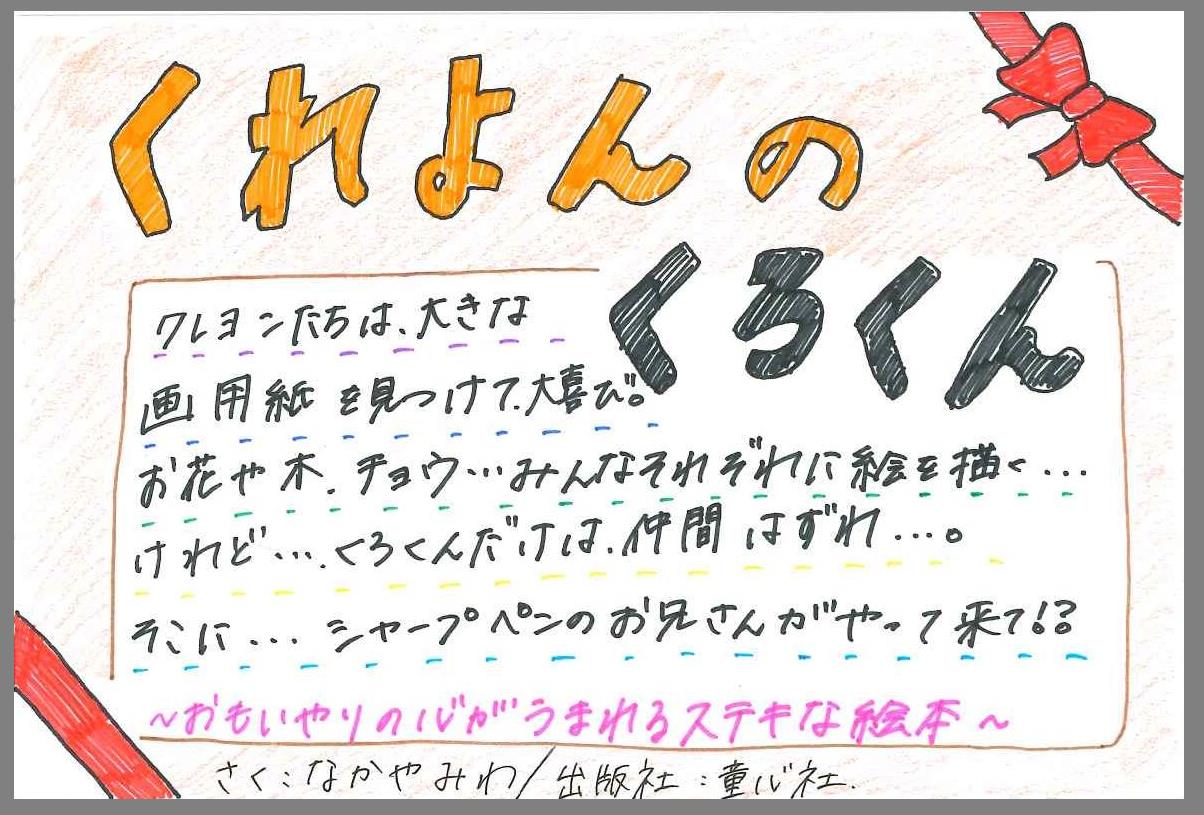 くれよんの
くろくん
クレヨンたちは、大きな
画用紙を見つけて、大喜び。
お花や木、チョウ…みんなそれぞれに絵を描く…
けれど…、くろくんだけは、仲間はずれ…。
そこに…シャープペンのお兄さんがやって来て!?
~おもいやりの心がうまれるステキな絵本~
さく:なかやみわ/出版社:童心社.